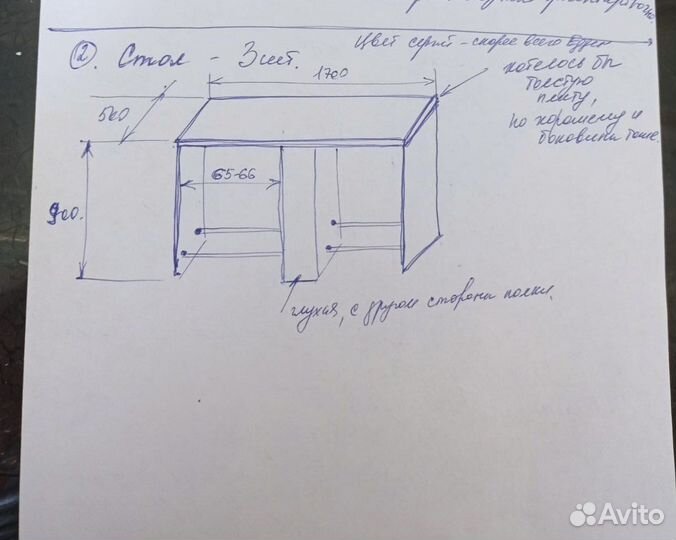 ② Стол - 3шт.
Цвет серый - скорее всего будет
хотелось бы
толстую
плиту,
по хорошему и
боковины тоже.
1700
500
900.
65-66
глухая, с другой стороны полки.
Avito